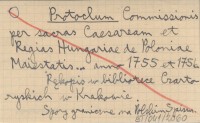 Protoclum Commissionis
per sacras Caesaream et
Regias Hungariae de Poloniae
Maiestatis... anno 1755 et 1756.
Rękopis w bibliotece Czarto
ryskich w Krakowie.
Spory graniczne na Polskim Spiszu.